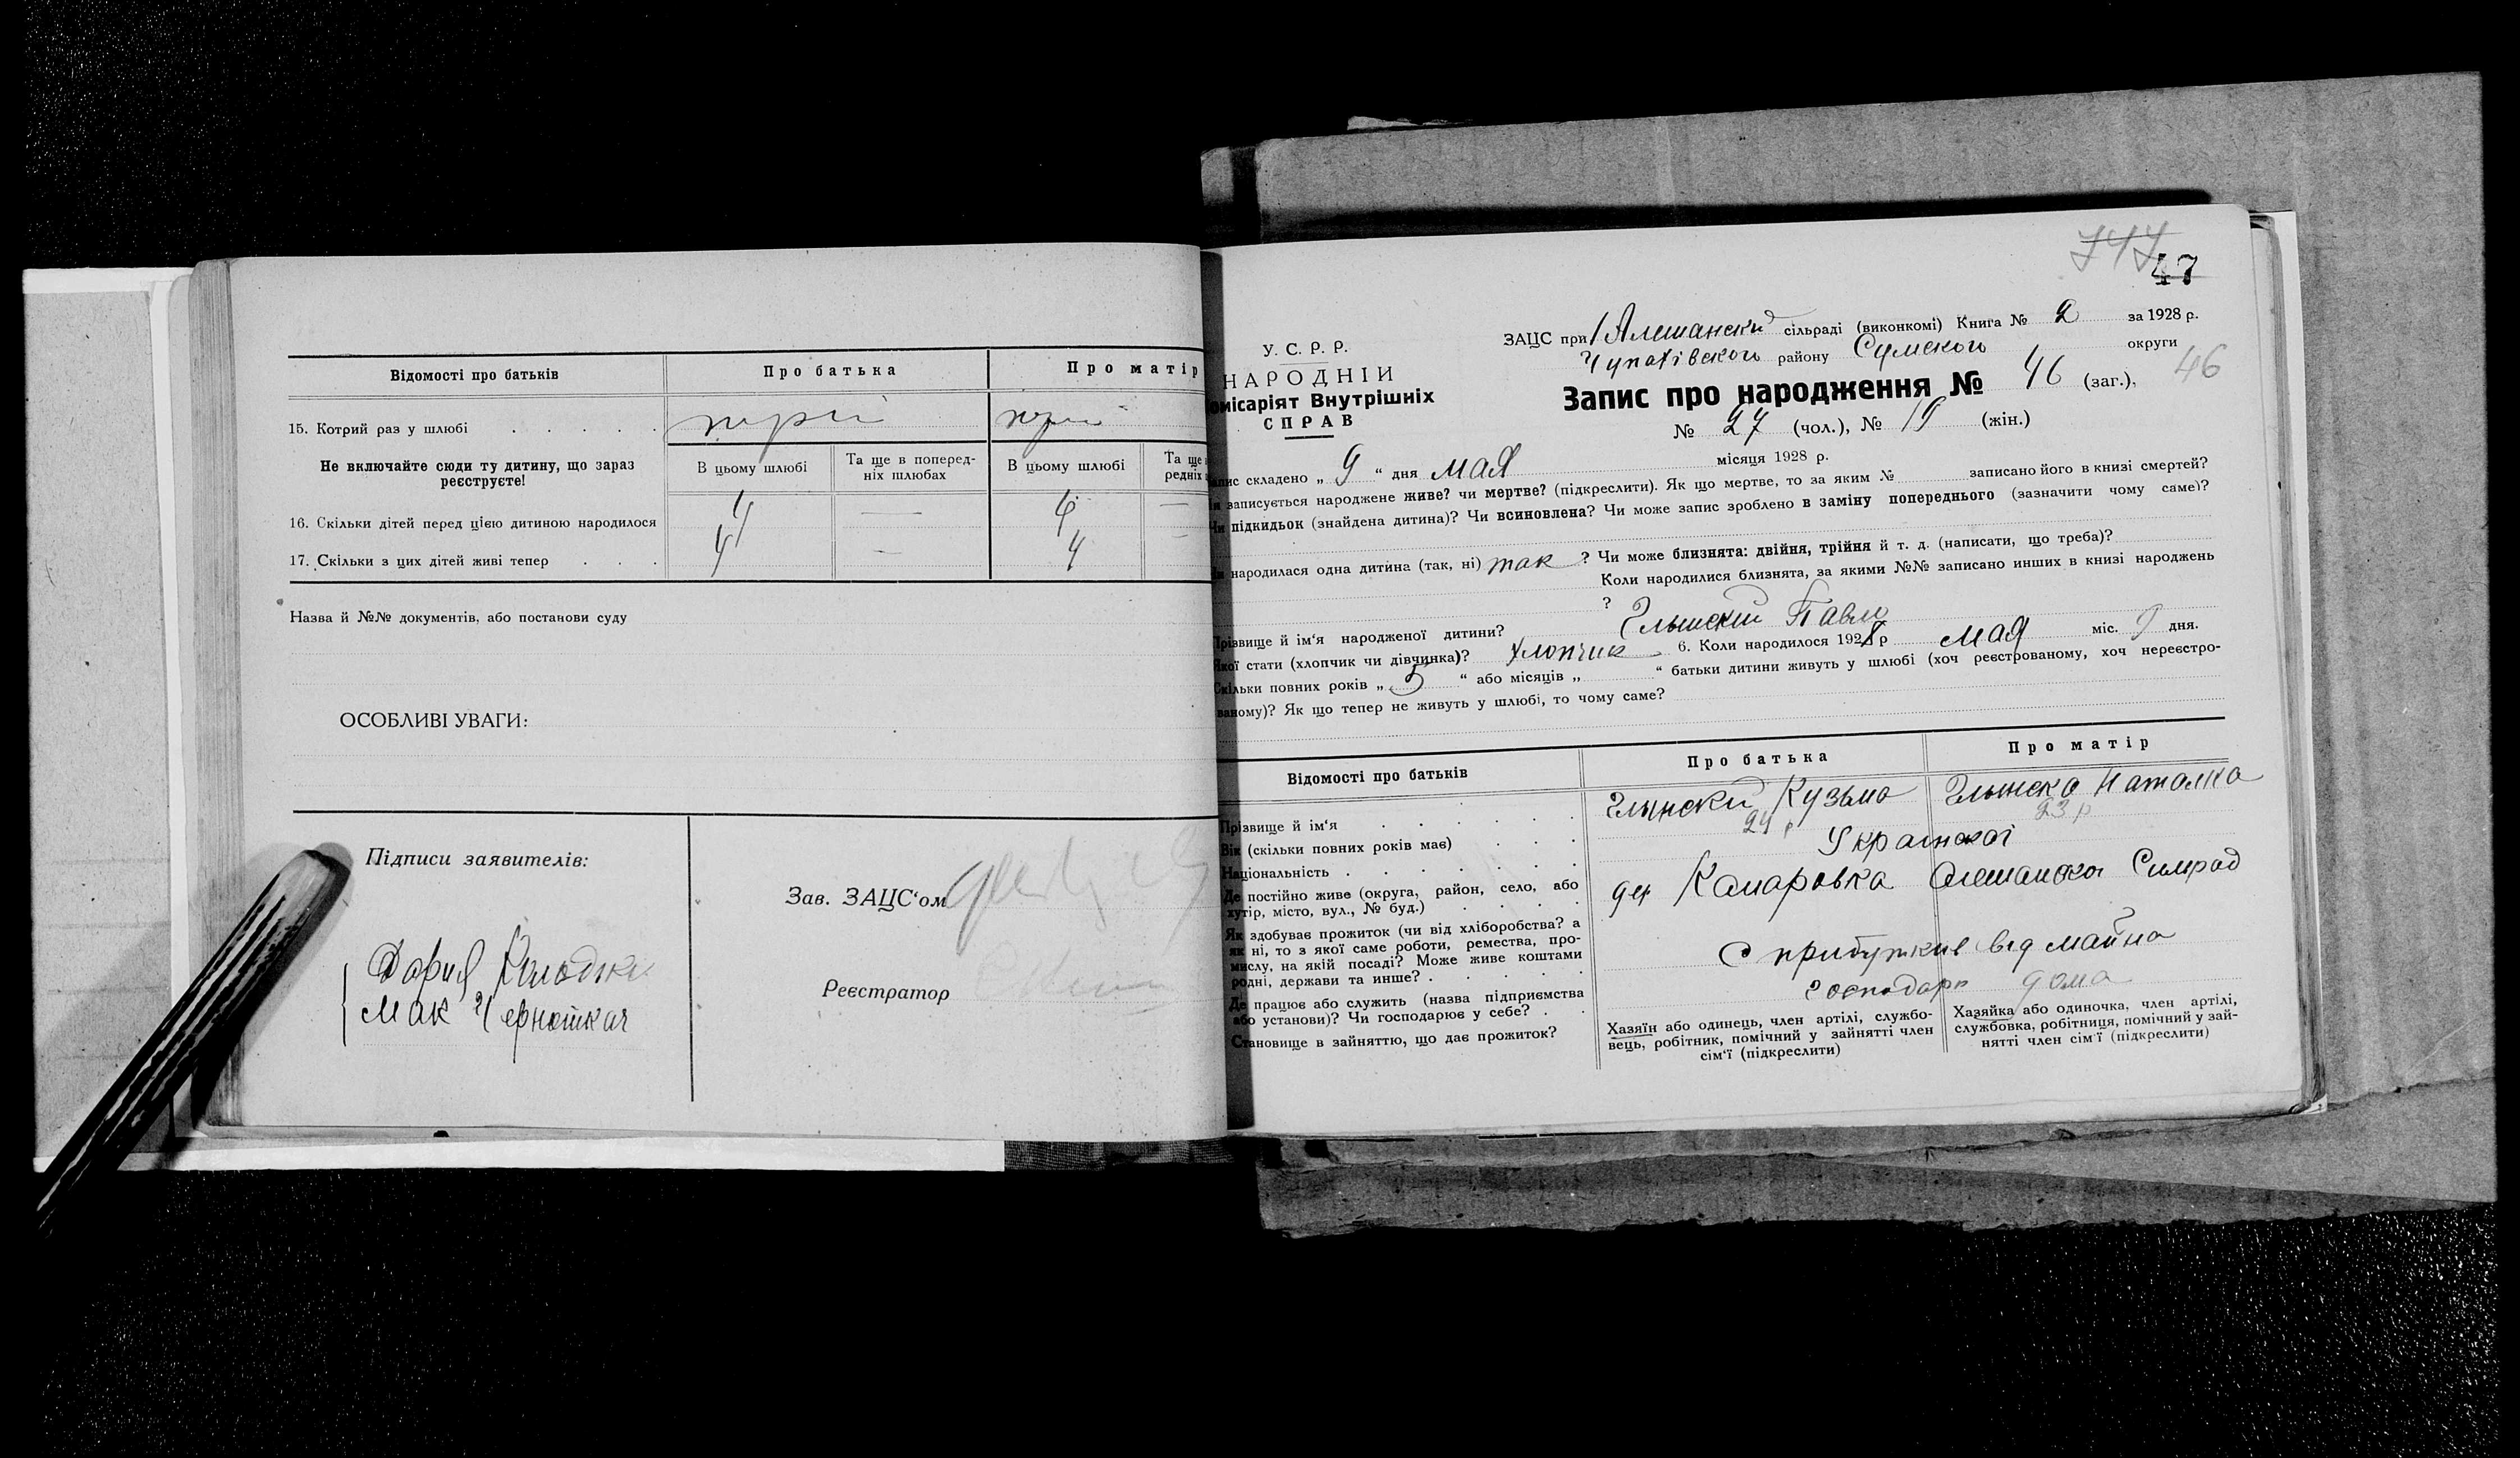 Відомості про батьків
Про батька
Про матір
15. Котрий раз у шлюбі
перш
перш
Не включайте сюди ту дитину, що зараз реєструєте!
В цьому шлюбі
Та ще в поперед-
ніх шлюбах
В цьому шлюбі
Та ще
редніх
16. Скільки дітей перед цією дитиною народилося
4
—
4
—
17. Скільки з цих дітей живі тепер
4
—
4
—
Назва й №№ документів, або постанови суду
ОСОБЛИВІ УВАГИ:
Підписи заявителів:
Дария
Мак Черноткач
Зав. ЗАЦС‘ом
Реєстратор
47
У. С. Р. Р.
НАРОДНІЙ
місаріят Внутрішніх
СПРАВ
ЗАЦС при Алешанский сільраді (виконкомі) Книга № 2 за 1928 р.
Чупахівского району Сумского округи
Запис про народження № 46 (заг.), 46
№ 27 (чол.), № 19 (жін.)
пис складено „ 9 “ дня мая місяця 1928 р.
записується народжене живе? чи мертве? (підкреслити). Як що мертве, то за яким № записано його в книзі смертей?
Чи підкидьок (знайдена дитина)? Чи всиновлена? Чи може запис зроблено в заміну попереднього (зазначити чому саме)?
народилася одна дитина (так, ні) так ? Чи може близнята: двійня, трійня й т. д. (написати, що треба)?
Коли народилися близнята, за якими №№ записано инших в книзі народжень
?
Прізвище й ім‘я народженої дитини? Глынский Павло
Якої стати (хлопчик чи дівчинка)? хлопчик 6. Коли народилося 1928 р мая міс. 9 дня.
Скільки повних років „ 5 “ або місяців „ “ батьки дитини живуть у шлюбі (хоч реєстрованому, хоч нереєстро-
ваному)? Як що тепер не живуть у шлюбі, то чому саме?
Відомості про батьків
Про батька
Про матір
Прізвище й ім‘я
Глынский Кузьма
Глынска Наталка
Вік (скільки повних років має)
24 р
23 р
Національність
Украінскоі
Де постійно живе (округа, район, село, або
хутір, місто, вул., № буд.)
дер Комаровка Алешанскоі Сильрад
Як здобуває прожиток (чи від хліборобства? а
як ні, то з якої саме роботи, ремества, про-
мислу, на якій посаді? Може живе коштами
родні, держави та инше?
С прибутків від майна
Де працює або служить (назва підприємства
або установи)? Чи господарює у себе?
господарь дома
Становище в зайняттю, що дає прожиток?
Хазяїн або одинець, член артілі, службо-
вець, робітник, помічний у зайнятті член
сім‘ї (підкреслити)
Хазяйка або одиночка, член артілі,
службовка, робітниця, помічний у зай-
нятті член сім‘ї (підкреслити)